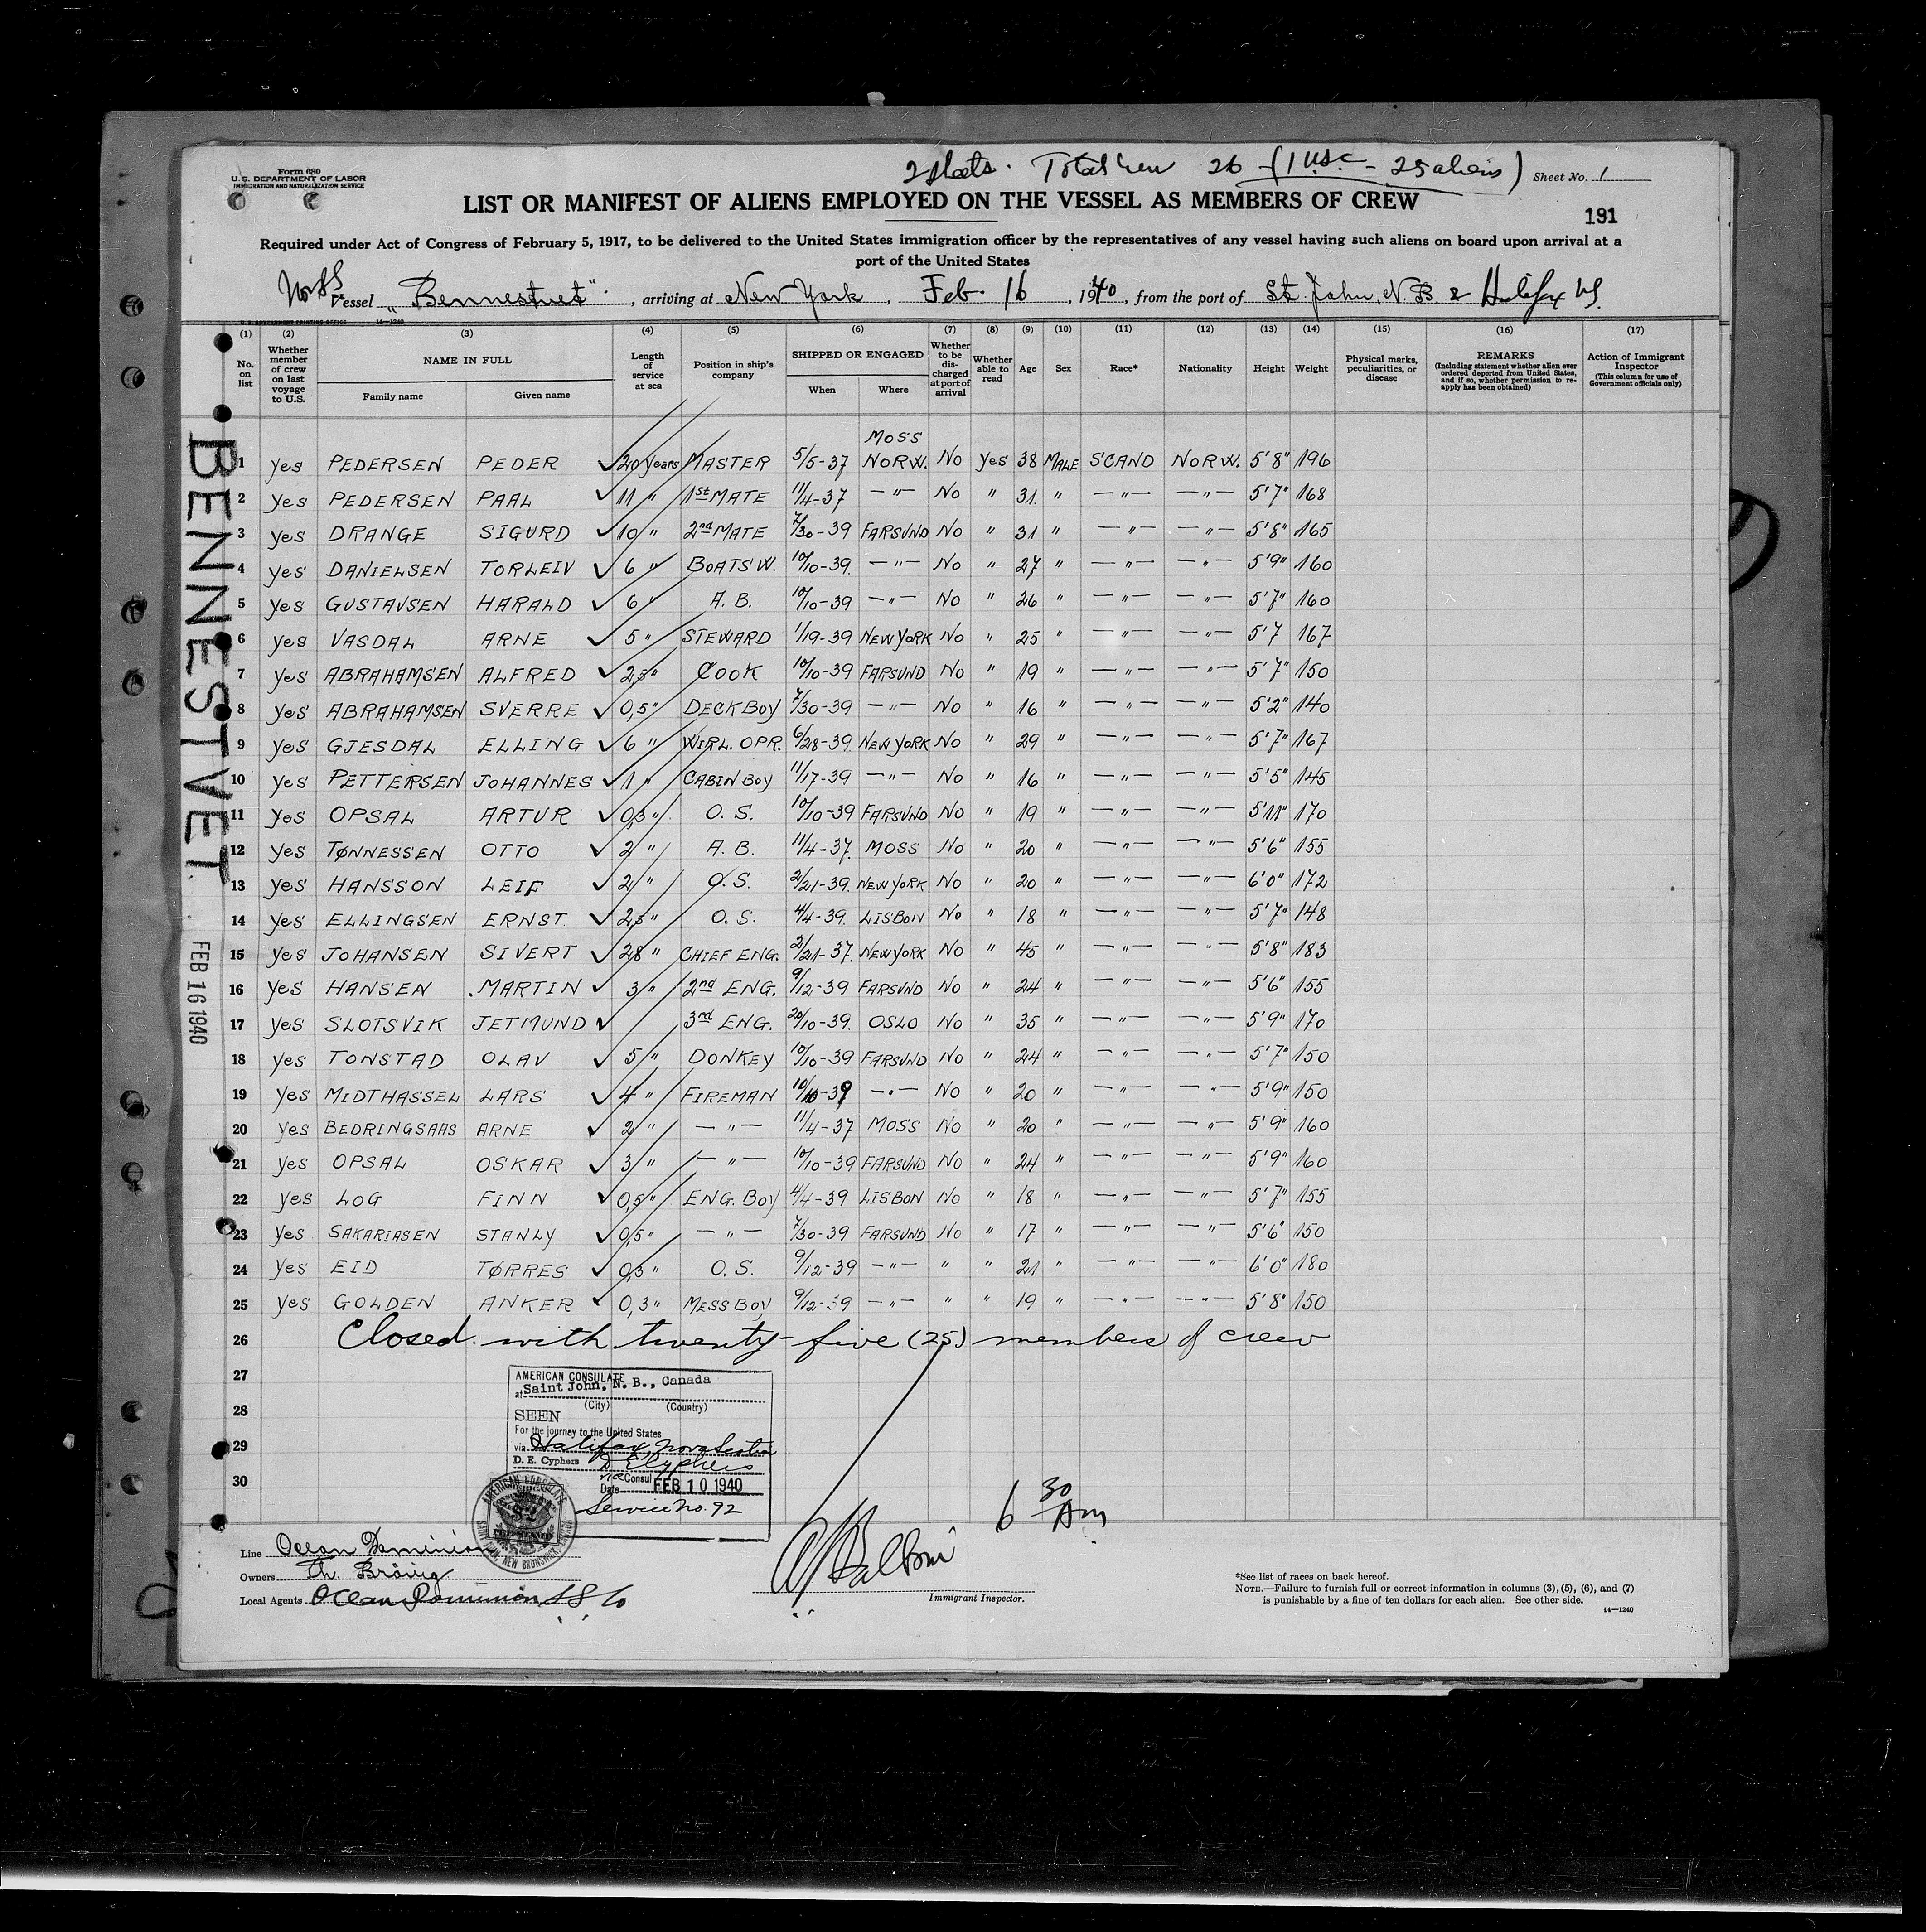 Form 680
U. S. DEPARTMENT OF LABOR
IMMIGRATION AND NATURALIZATION SERVICE
2 sheets. Total Crew 26 (1 USC - 25 aliens)
Sheet No. 1
LIST OR MANIFEST OF ALIENS EMPLOYED ON THE VESSEL AS MEMBERS OF CREW
191
Required under Act of Congress of February 5, 1917, to be delivered to the United States immigration officer by the representatives of any vessel having such aliens on board upon arrival at a
port of the United States
Nor SS Vessel "Bennestvet", arriving at New York, Feb. 16, 1940, from the port of St. John, N.B & Halifax NS.
U. S. GOVERNMENT PRINTING OFFICE 14—1240
(1) (2) (3) (4) (5) (6) (7) (8) (9) (10) (11) (12) (13) (14) (15) (16) (17)
No. on list
Whether member of crew on last voyage to U.S.
NAME IN FULL
Family name
Given name
Length of service at sea
Position in ship's company
SHIPPED OR ENGAGED
When
Where
Whether to be discharged at port of arrival
Whether able to read
Age
Sex
Race*
Nationality
Height
Weight
Physical marks, peculiarities, or disease
REMARKS
(Including statement whether alien ever ordered deported from United States, and if so, whether permission to reapply has been obtained)
Action of Immigrant Inspector
(This column for use of Government officials only)
BENNESTVET
FEB 16 1940
MOSS
1 yes PEDERSEN PEDER ✓ 20 years MASTER 5/5-37 NORW. No yes 38 MALE SCAND NORW. 5'8" 196
2 yes PEDERSEN PAAL ✓ 11 " 1st MATE 11/4-37 —"— No " 31 " —"— —"— 5'7" 168
3 yes DRANGE SIGURD ✓ 10 " 2nd MATE 7/30-39 FARSUND No " 31 " —"— —"— 5'8" 165
4 yes DANIELSEN TORLEIV ✓ 6 " BOATS'W. 10/10-39. —"— No " 27 " —"— —"— 5'9" 160
5 yes GUSTAVSEN HARALD ✓ 6 " A. B. 10/10-39 —"— No " 26 " —"— —"— 5'7" 160
6 yes VASDAL ARNE ✓ 5 " STEWARD 1/19-39 NEW YORK No " 25 " —"— —"— 5'7 167
7 yes ABRAHAMSEN ALFRED ✓ 2,5 " COOK 10/10-39 FARSUND No " 19 " —"— —"— 5'7" 150
8 yes ABRAHAMSEN SVERRE ✓ 0,5 " DECK BOY 7/30-39 —"— No " 16 " —"— —"— 5'2" 140
9 yes GJESDAL ELLING ✓ 6 " WIRL. OPR. 6/28-39. NEW YORK No " 29 " —"— —"— 5'7" 167
10 yes PETTERSEN JOHANNES ✓ 1 " CABIN BOY 11/17-39 —"— No " 16 " —"— —"— 5'5" 145
11 yes OPSAL ARTUR ✓ 0,3 " O. S. 10/10-39 FARSUND No " 19 " —"— —"— 5'11" 170
12 yes TØNNESSEN OTTO ✓ 2 " A. B. 11/4-37. MOSS No " 20 " —"— —"— 5'6" 155
13 yes HANSSON LEIF ✓ 2 " O. S. 2/21-39. NEW YORK No " 20 " —"— —"— 6'0" 172
14 yes ELLINGSEN ERNST. ✓ 2,5 " O. S. 4/4-39. LISBON No " 18 " —"— —"— 5'7" 148
15 yes JOHANSEN SIVERT ✓ 28 " CHIEF ENG. 2/21-37. NEW YORK No " 45 " —"— —"— 5'8" 183
16 yes HANSEN MARTIN ✓ 3 " 2nd ENG. 9/12-39 FARSUND No " 24 " —"— —"— 5'6" 155
17 yes SLOTSVIK JETMUND ✓ 3rd ENG. 20/10-39. OSLO No " 35 " —"— —"— 5'9" 170
18 yes TONSTAD OLAV ✓ 5 " DONKEY 10/10-39 FARSUND No " 24 " —"— —"— 5'7" 150
19 yes MIDTHASSEL LARS ✓ 4 " FIREMAN 10/10-39 —"— No " 20 " —"— —"— 5'9" 150
20 yes BEDRINGSAAS ARNE ✓ 2 " —"— 11/4-37 MOSS No " 20 " —"— —"— 5'9" 160
21 yes OPSAL OSKAR ✓ 3 " —"— 10/10-39 FARSUND No " 24 " —"— —"— 5'9" 160
22 yes LOG FINN ✓ 0,5 " ENG. BOY 4/4-39 LISBON No " 18 " —"— —"— 5'7" 155
23 yes SAKARIASEN STANLY ✓ 0,5 " —"— 7/30-39 FARSUND No " 17 " —"— —"— 5'6" 150
24 yes EID TØRRES ✓ 0,3 " O. S. 9/12-39 —"— " " 21 " —"— —"— 6'0" 180
25 yes GOLDEN ANKER ✓ 0,3 " MESS BOY 9/12-39 —"— " " 19 " —"— —"— 5'8" 150
26 Closed with twenty-five (25) members of crew
27
28
29
30
AMERICAN CONSULATE
at Saint John, N. B., Canada
(City) (Country)
SEEN
For the journey to the United States
via Halifax, Nova Scotia
D. E. Cyphers D E Cyphers
Vice Consul
Date FEB 10 1940
Service No. 92
AMERICAN CONSULATE
SAINT JOHN, NEW BRUNSWICK
6 30 Am
Line Ocean Dominion
Owners Th. Brövig
Local Agents Ocean Dominion SS Co
Immigrant Inspector.
*See list of races on back hereof.
NOTE.—Failure to furnish full or correct information in columns (3), (5), (6), and (7)
is punishable by a fine of ten dollars for each alien. See other side.
14—1240